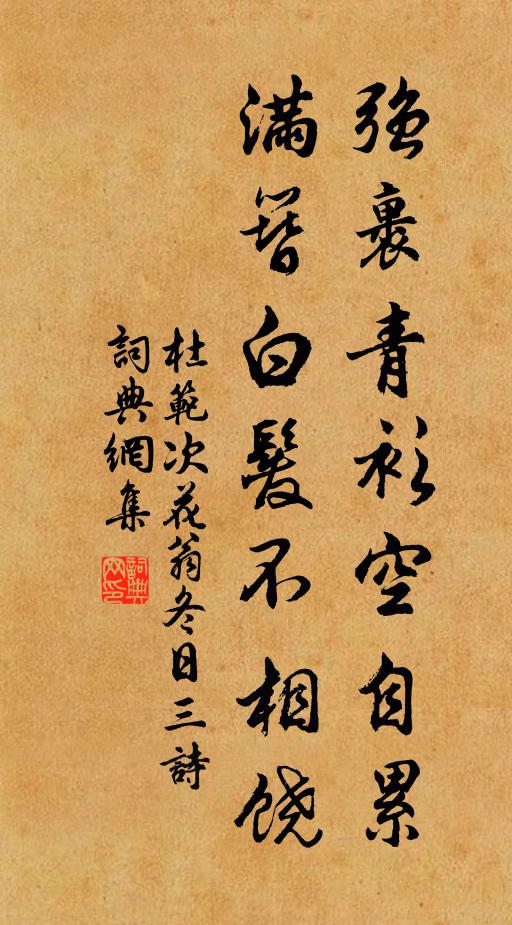 强裹青衫空自累
满簪白髮不相饶
杜範次花翁冬日三詩
詞典網集
詞典
网印